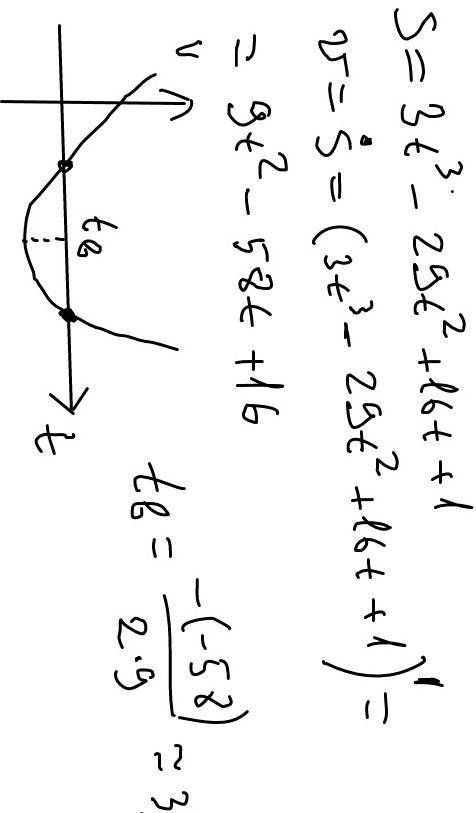 S = 3t³ - 29t² + 16t + 1
v = Ṡ = (3t³ - 29t² + 16t + 1)' =
= 9t² - 58t + 16
v
tв
t
tв = -(-58)/2·9 ≈ 3